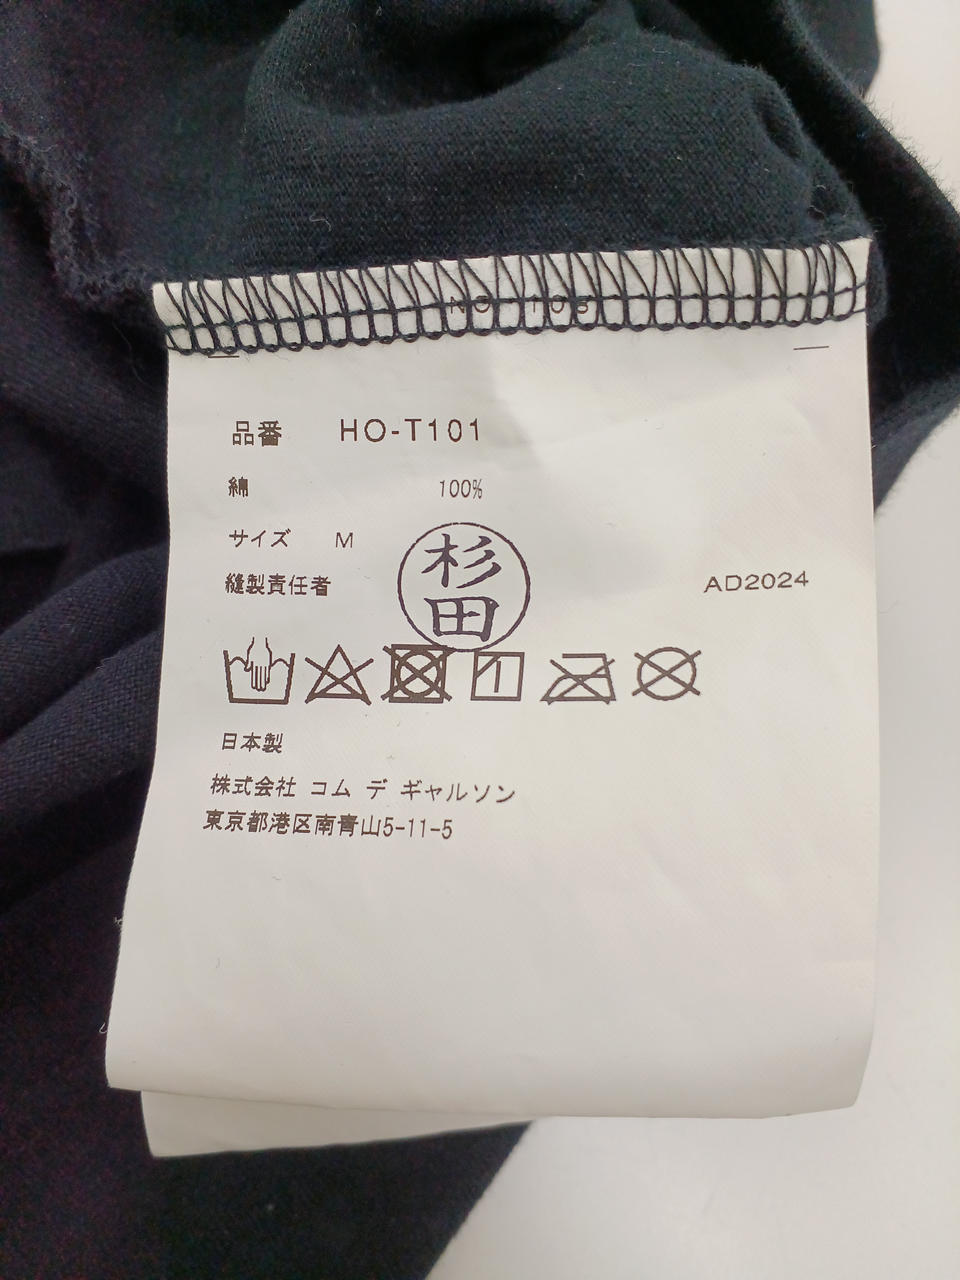 品番 HO-T101
綿 100%
サイズ M
杉田
縫製責任者 AD2024
日本製
株式会社 コム デ ギャルソン
東京都港区南青山5-11-5